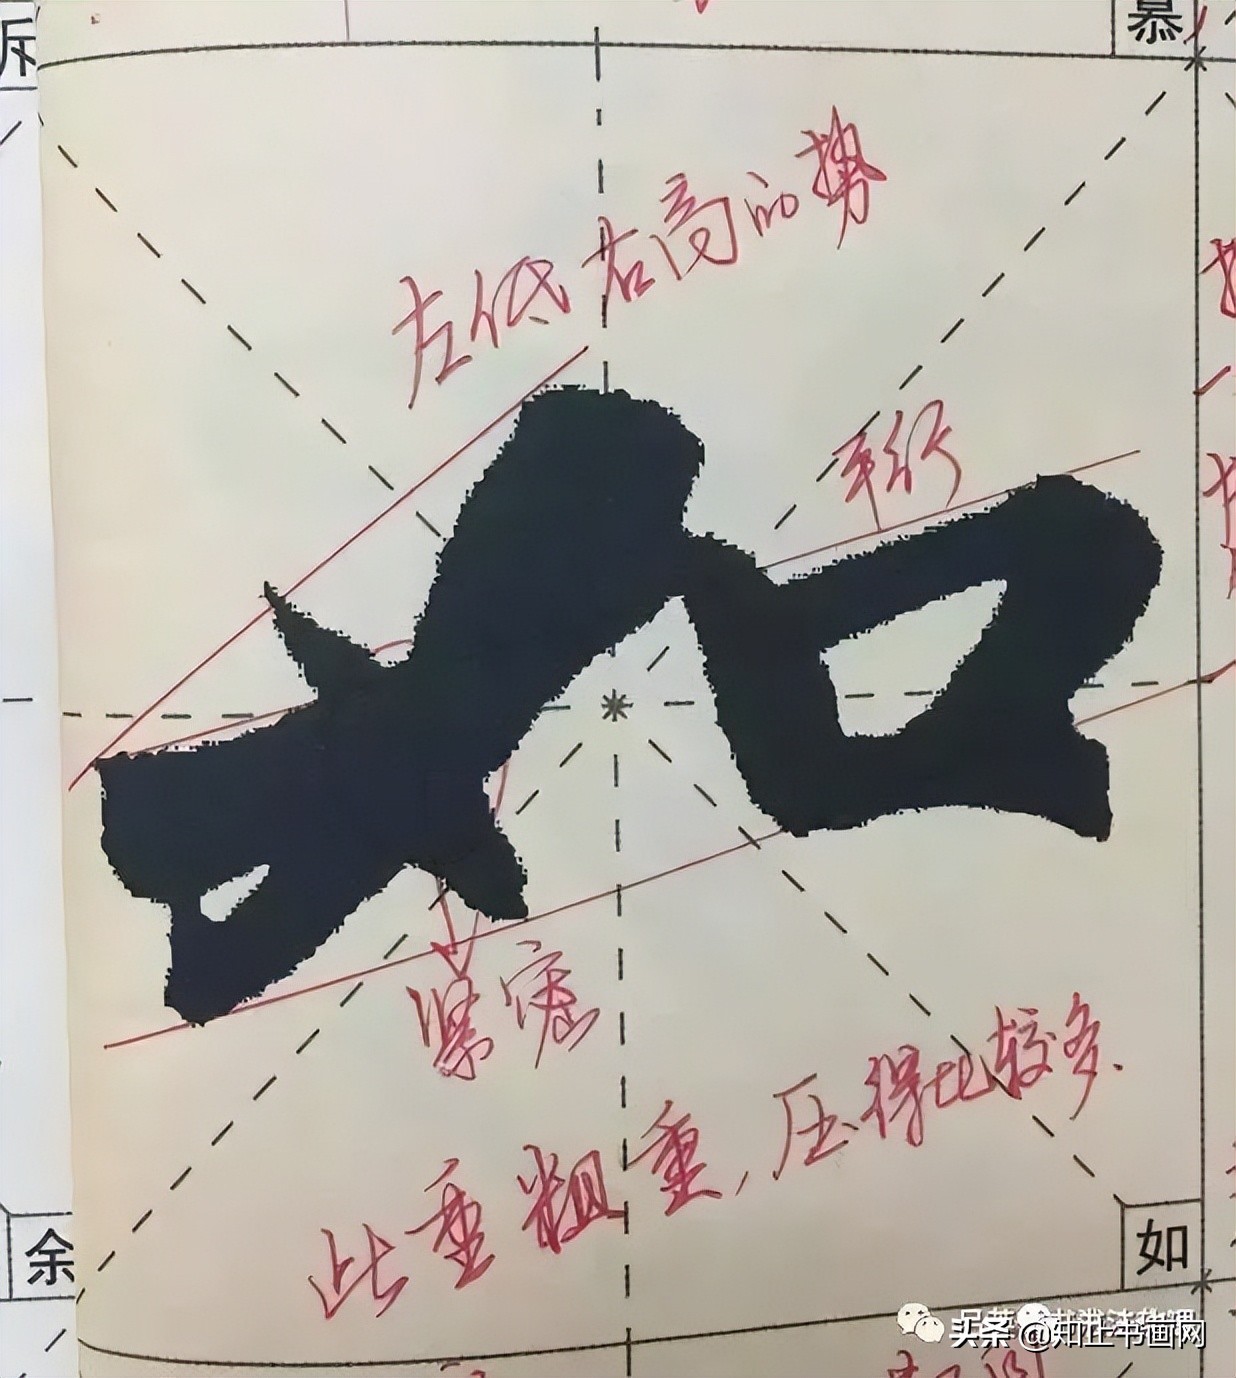 慕
斥
左低右高的势
平行
如
紧密
此重粗重，压得比较多.
余
如
头条 @知止书画网